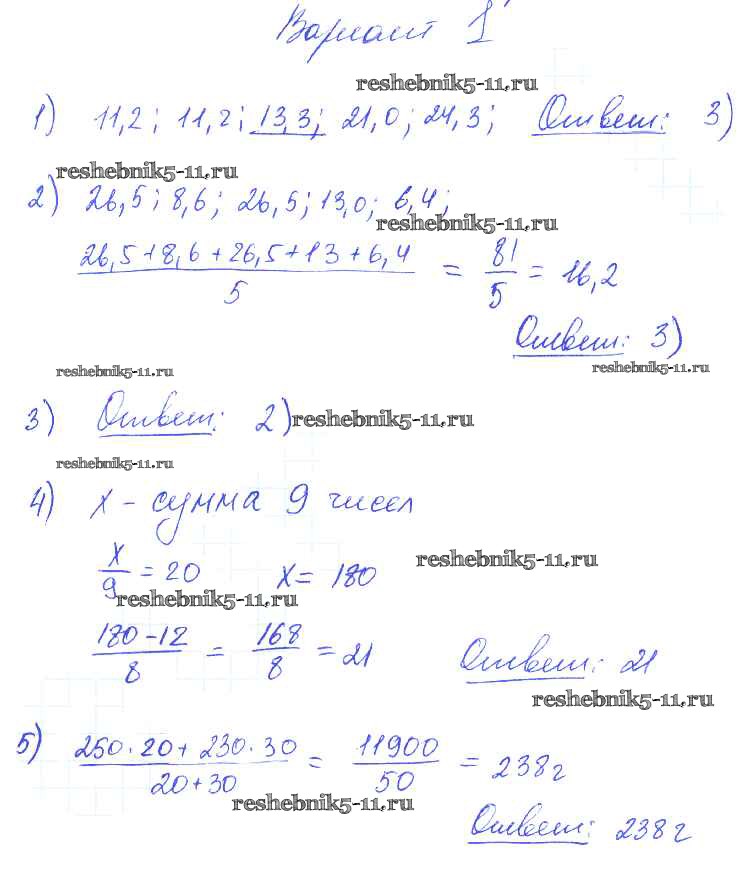 Вариант 1
reshebnik5-11.ru
1) 11,2; 11,2; 13,3; 21,0; 24,3; Ответ: 3)
reshebnik5-11.ru
2) 26,5; 8,6; 26,5; 13,0; 6,4;
reshebnik5-11.ru
26,5+8,6+26,5+13+6,4 / 5 = 81/5 = 16,2
Ответ: 3)
reshebnik5-11.ru reshebnik5-11.ru
3) Ответ: 2) reshebnik5-11.ru
reshebnik5-11.ru
4) x - сумма 9 чисел
x/9 = 20 x = 180
reshebnik5-11.ru
reshebnik5-11.ru
180-12 / 8 = 168/8 = 21 Ответ: 21
reshebnik5-11.ru
5) 250·20+230·30 / 20+30 = 11900/50 = 238г
reshebnik5-11.ru
Ответ: 238г